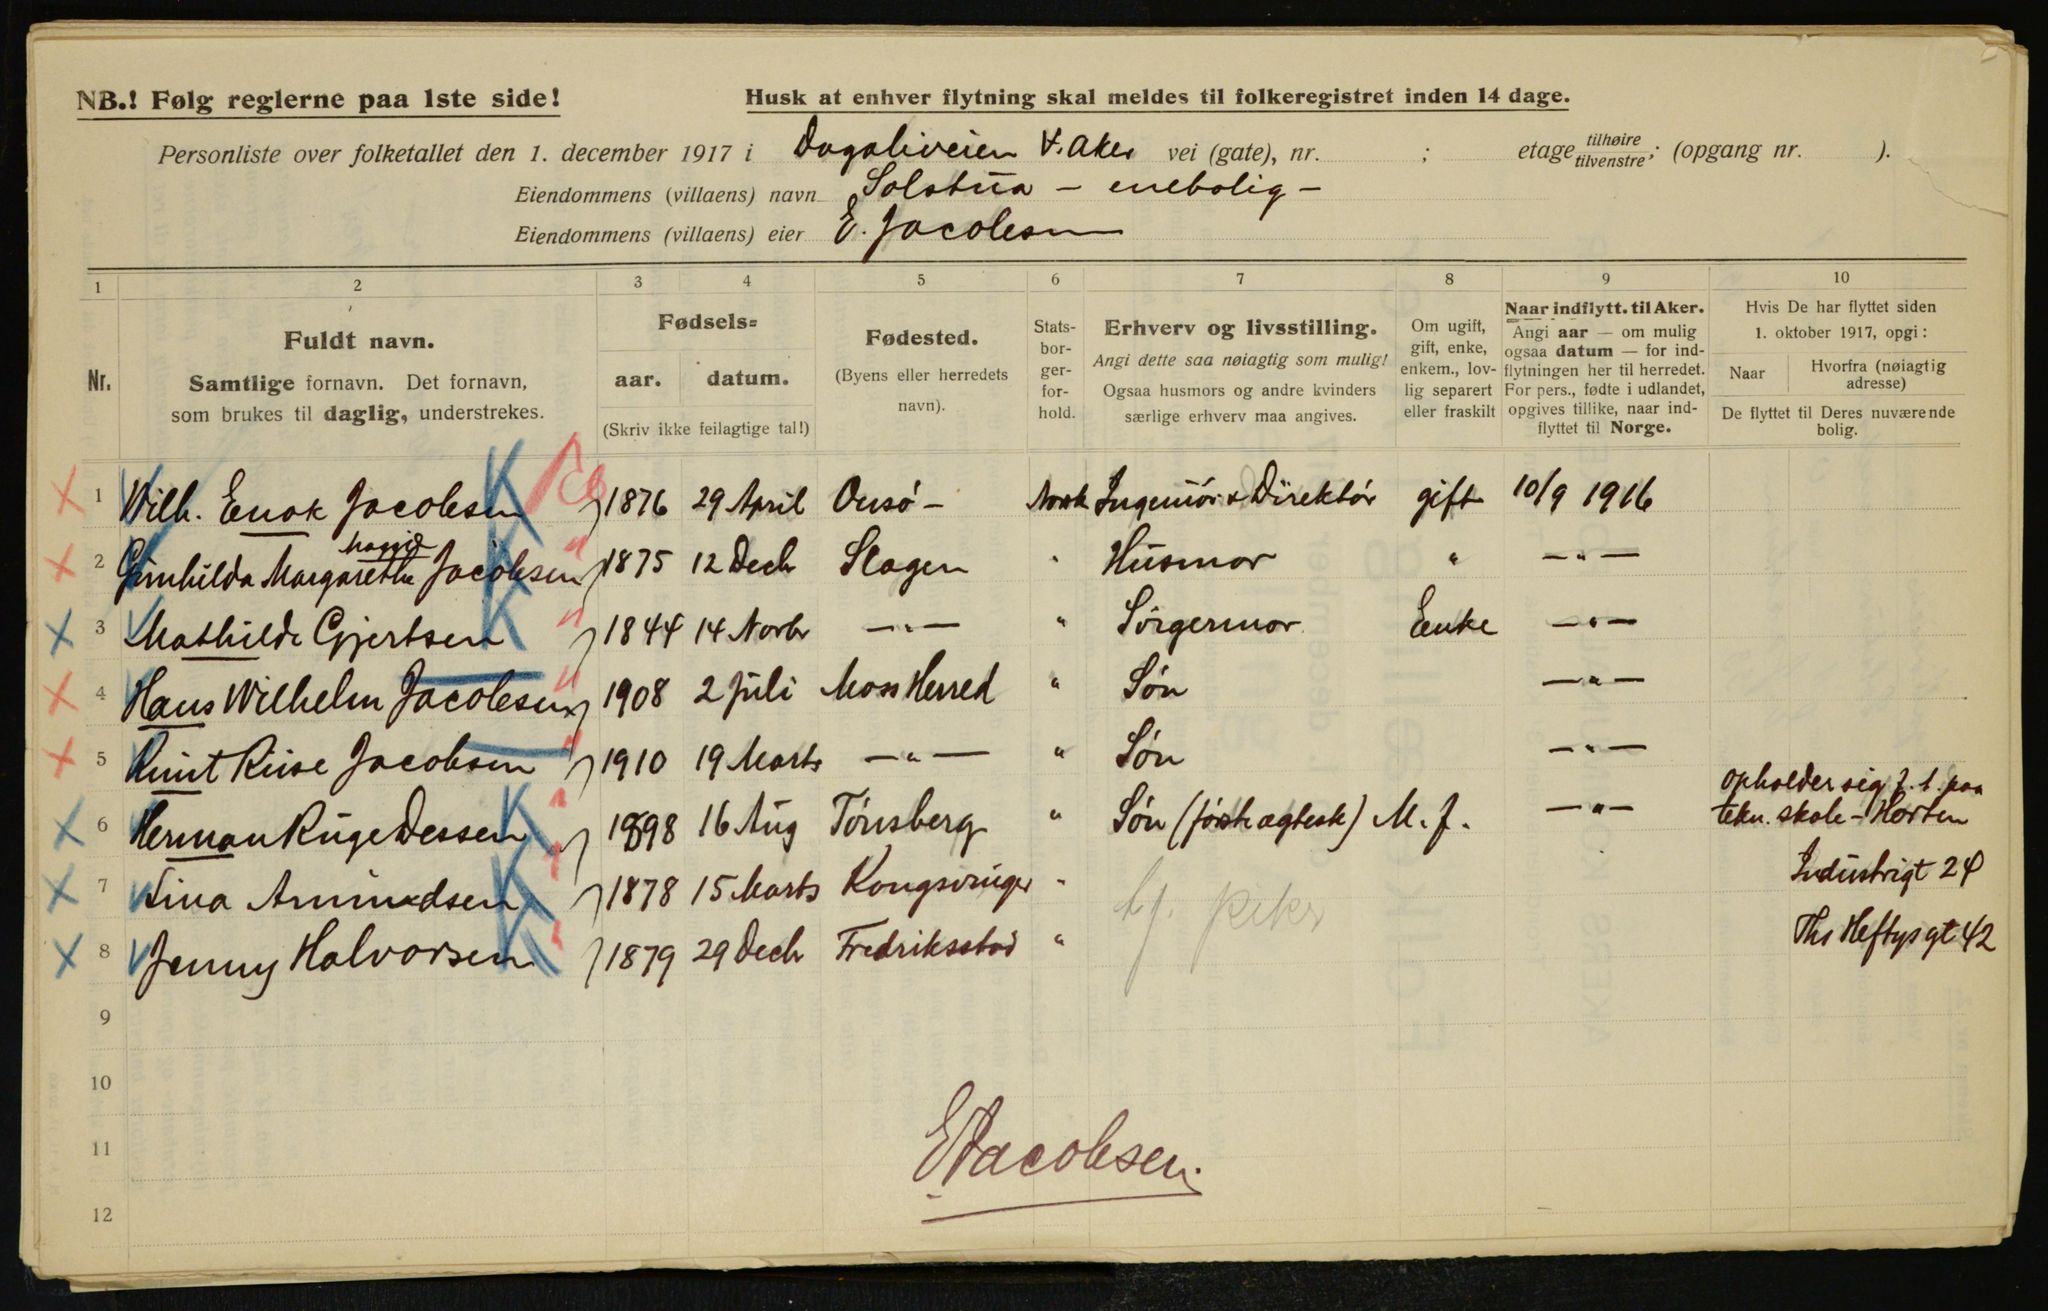 NB.! Følg reglerne paa 1ste side!
Husk at enhver flytning skal meldes til folkeregistret inden 14 dage.
Personliste over folketallet den 1. december 1917 i Dagaliveien V. Aker vei (gate), nr. ; etage tilhøire tilvenstre; (opgang nr. ).
Eiendommens (villaens) navn Solstua – enebolig –
Eiendommens (villaens) eier E. Jacobsen
1 2 3 4 5 6 7 8 9 10
Nr.
Fuldt navn.
Samtlige fornavn. Det fornavn,
som brukes til daglig, understrekes.
Fødsels=
aar. datum.
(Skriv ikke feilagtige tal!)
Fødested.
(Byens eller herredets
navn).
Stats-
bor-
ger-
for-
hold.
Erhverv og livsstilling.
Angi dette saa nøiagtig som mulig!
Ogsaa husmors og andre kvinders
særlige erhverv maa angives.
Om ugift,
gift, enke,
enkem., lov-
lig separert
eller fraskilt
Naar indflytt. til Aker.
Angi aar — om mulig
ogsaa datum — for ind-
flytningen her til herredet.
For pers., fødte i udlandet,
opgives tillike, naar ind-
flyttet til Norge.
Hvis De har flyttet siden
1. oktober 1917, opgi:
Naar
Hvorfra (nøiagtig
adresse)
De flyttet til Deres nuværende
bolig.
1 Wilh. Enok Jacobsen 1876 29 April Onsø – Norsk Ingeniør & Direktør gift 10/9 1916
2 Gunhilda Margarethe Jacobsen 1875 12 Decb Slagen " Husmor " — " —
3 Mathilde Gjertsen 1844 14 Novbr — " — " Svigermor Enke — " —
4 Hans Wilhelm Jacobsen 1908 2 Juli Moss Herred " Søn — " —
5 Knut Riise Jacobsen 1910 19 Marts — " — " Søn — " —
opholder sig f. t. paa
6 Herman Ruge Dessen 1898 16 Aug Tønsberg " Søn (første ægtesk) M. f. — " — tekn. skole – Horten
7 Tina Amundsen 1878 15 Marts Kongsvinger " Industrigt 24
8 Jenny Halvorsen 1879 29 Decb Fredriksstad " Ths Heftysgt 42
9
10
11
12
E Jacobsen.